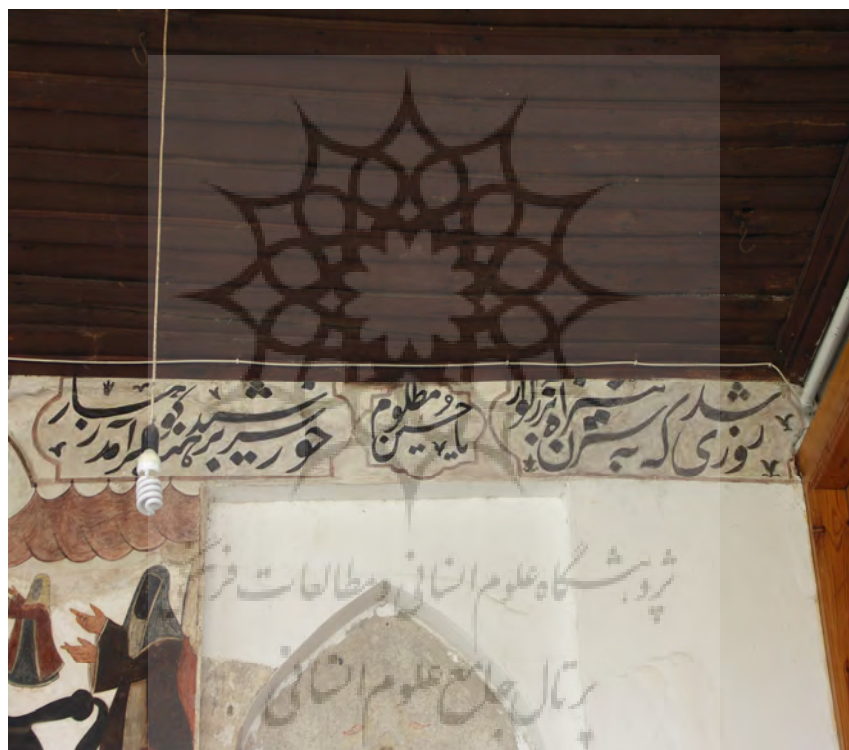 روزی که شد به نیزه سر آن بزرگوار
یا حسین مظلوم
خورشید سر برهنه برآمد ز کوهسار
پژوهشگاه علوم انسانی و مطالعات فرهنگی
پرتال جامع علوم انسانی